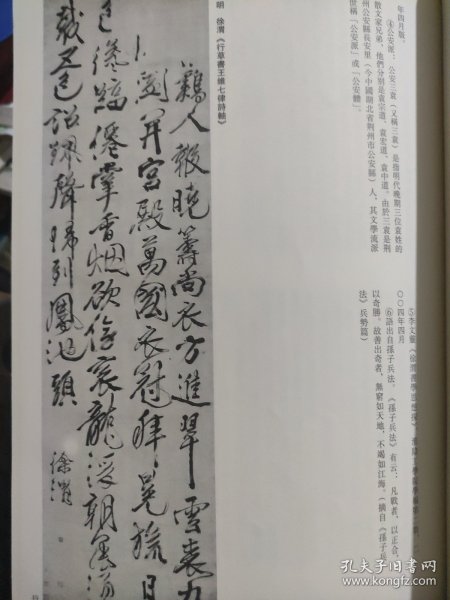 年四月版。
④公安派：公安三袁（又稱三袁）是指明代晚期三位袁姓的
散文家兄弟，他們分別是袁宗道、袁宏道、袁中道。由於三袁是荆
州公安縣長安里（今中國湖北省荆州市公安縣）人，其文學流派
世稱「公安派」或「公安體」。
⑤李文
《徐渭書學思想探》，淮陰工學院學報
〇〇四年四月
⑥語出自孫子兵法，《孫子兵法》有云：凡戰者，以正合，
以奇勝。故善出奇者，無窮如天地，不竭如江海。（摘自《孫子兵
法》兵勢篇）
明 徐渭《行草書王維七律詩軸》
鷄人報曉籌尚衣方進翠雲裘九
開宮殿萬國衣冠拜冕旒日
色纔臨僊掌香烟欲傍袞龍浮朝罷須
裁五色詔珮聲歸到鳳池頭
徐渭
孔夫子旧书网